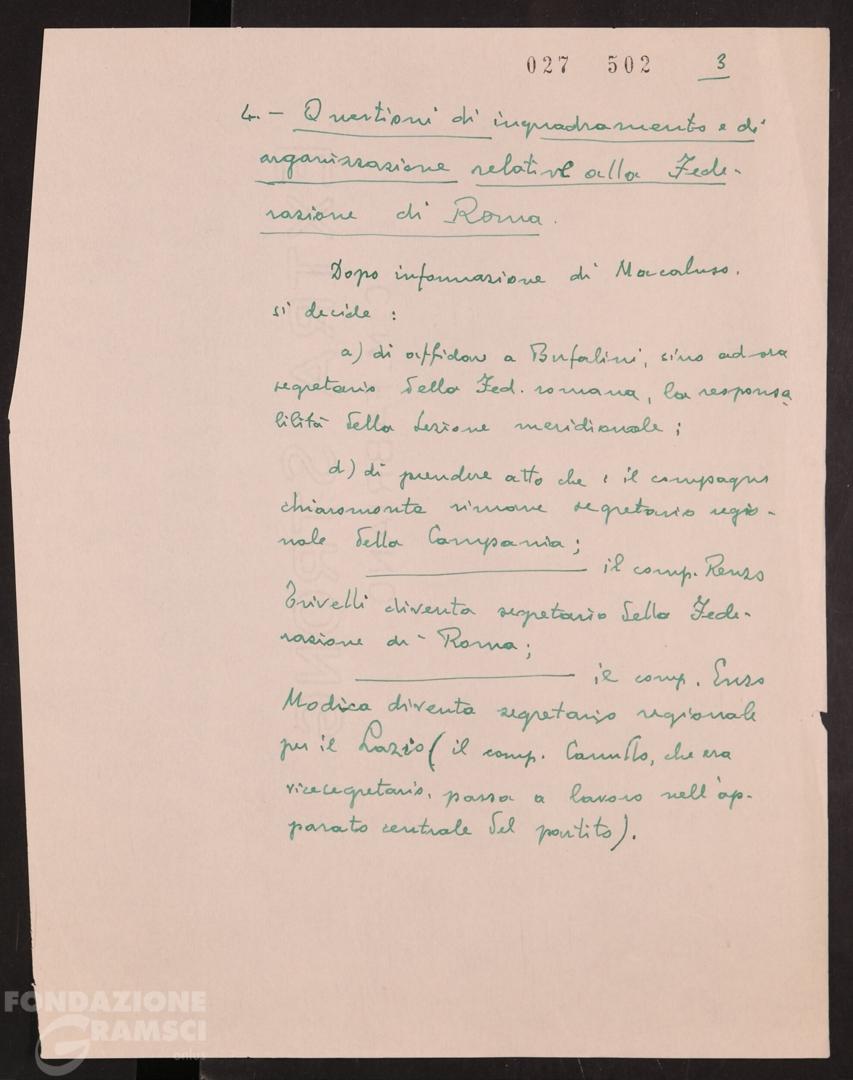 027 502 3
4. - Questioni di inquadramento e di
organizzazione relative alla Fede-
razione di Roma.
Dopo informazione di Macaluso,
si decide :
a) di affidare a Bufalini, sino ad ora
segretario della Fed. romana, la responsa
bilità della Sezione meridionale ;
d) di prendere atto che : il compagno
Chiaromonte rimane segretario regio-
nale della Campania ;
il comp. Renzo
Trivelli diventa segretario della Fede-
razione di Roma ;
il comp. Enzo
Modica diventa segretario regionale
per il Lazio ( il comp. Canullo, che era
vicesegretario, passa a lavoro nell'ap-
parato centrale del partito ).
FONDAZIONE
GRAMSCI
onlus